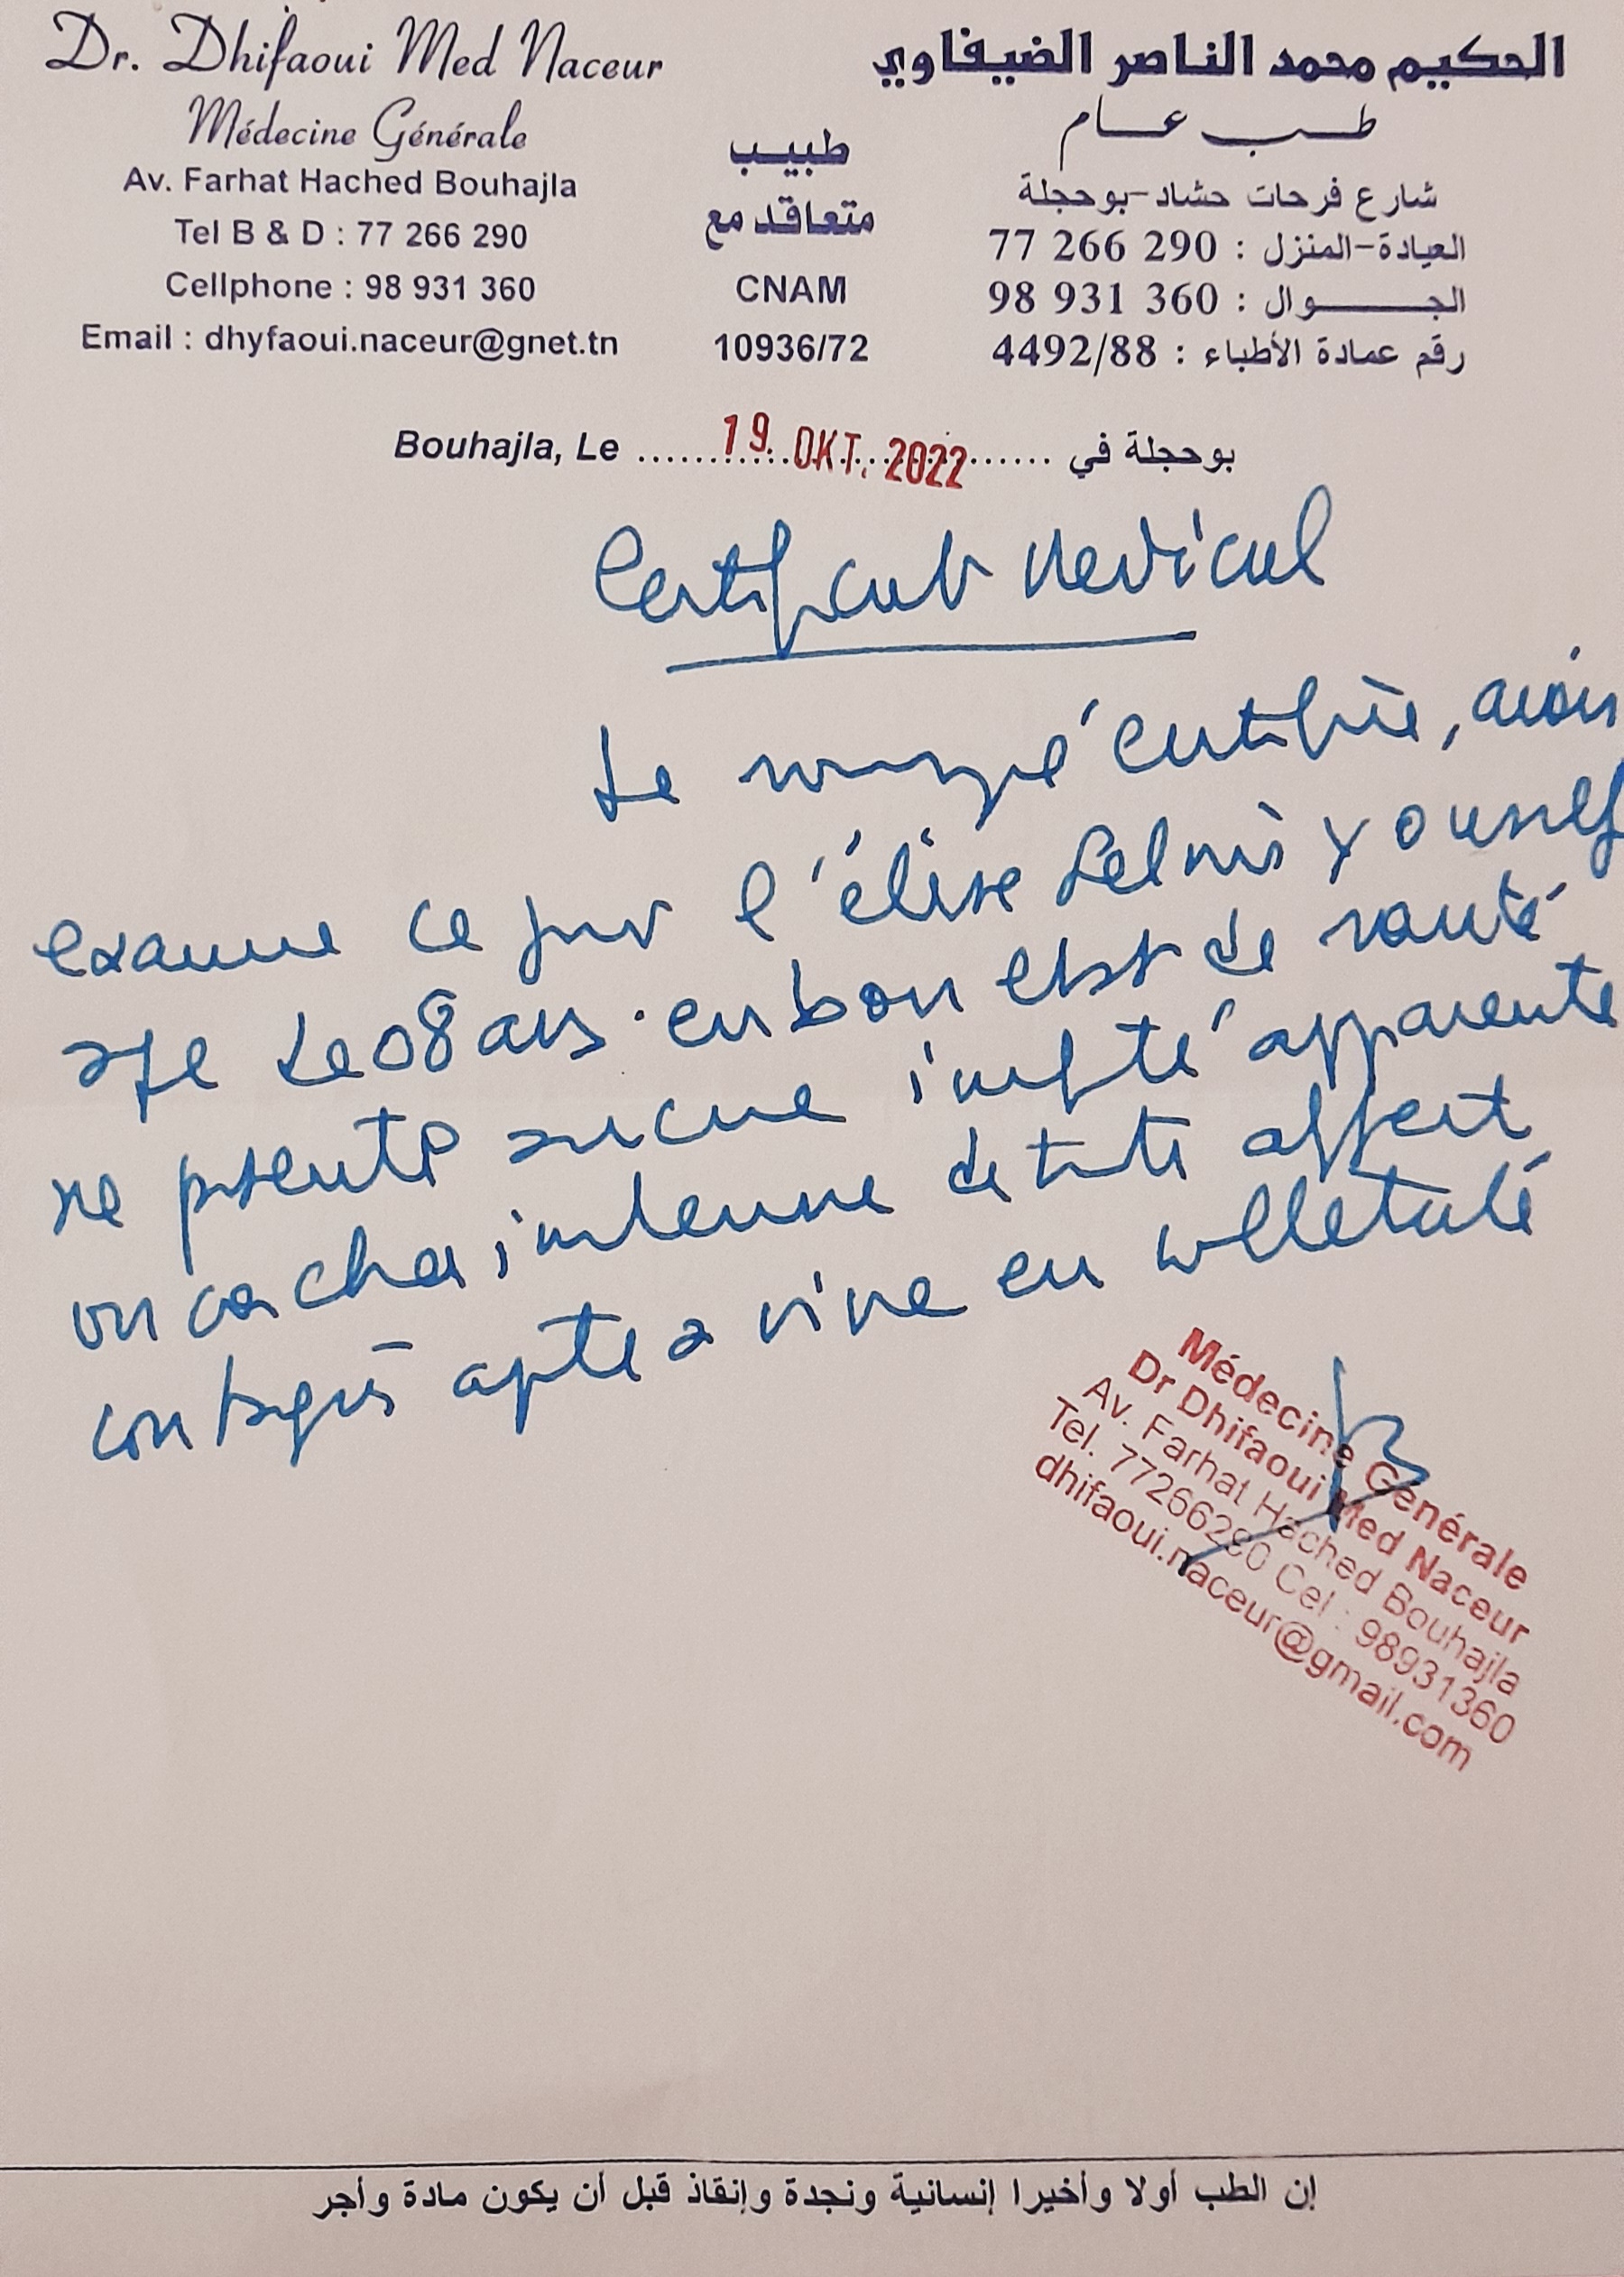 Dr. Dhifaoui Med Naceur
Médecine Générale
Av. Farhat Hached Bouhajla
Tel B & D : 77 266 290
Cellphone : 98 931 360
Email : dhyfaoui.naceur@gnet.tn
طبيب
متعاقد مع
CNAM
10936/72
الحكيم محمد الناصر الضيفاوي
طب عام
شارع فرحات حشاد-بوحجلة
العيادة-المنزل : 77 266 290
الجوال : 98 931 360
رقم عمادة الأطباء : 4492/88
Bouhajla, Le 19. OKT. 2022 بوحجلة في
Certificat Medical
Je soussigné certifie, avoir
examine ce jour l'élève Selmi Youssef
age de 08 ans. en bon etat de santé
ne presente aucune apparente
ou cachee, indemne de toute affect
contagieus apte a vivre en colletivité
Médecine Générale
Dr Dhifaoui Med Naceur
Av. Farhat Hached Bouhajla
Tel. 77266290 Cel : 98931360
dhifaoui.naceur@gmail.com
إن الطب أولا وأخيرا إنسانية ونجدة وإنقاذ قبل أن يكون مادة وأجر